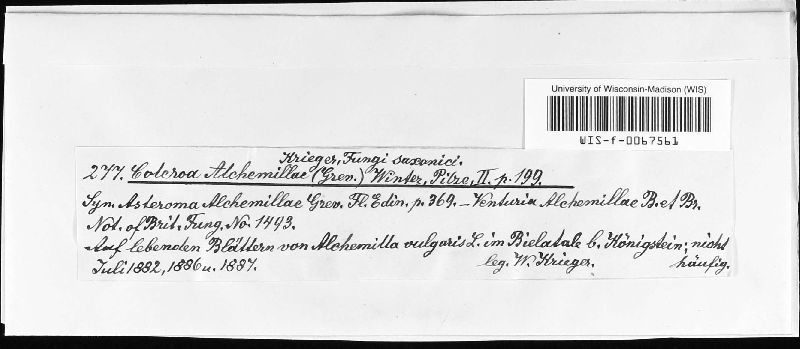 University of Wisconsin-Madison (WIS)
WIS-f-0067561
Krieger, Fungi saxonici.
277. Coleroa Alchemillae (Grev.) Winter, Pilze, II. p. 199.
Syn. Asteroma Alchemillae Grev. Fl. Edin. p. 369. – Venturia Alchemillae B. et Br.
Not. of Brit. Fung. No. 1493.
Auf lebenden Blättern von Alchemilla vulgaris L. im Bielatale b. Königstein; nicht
Juli 1882, 1886 u. 1887. leg. W. Krieger. häufig.